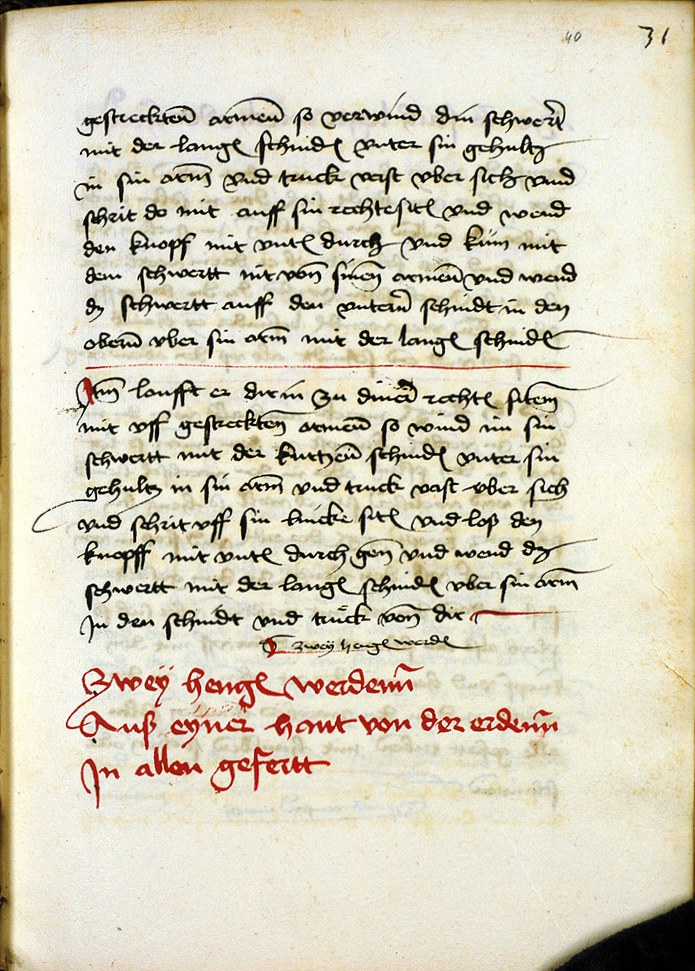 40 31
gestreckten armen so verwind din schwert
mit der langen schniden unter sin gehultz
in sin arm vnd truck vast vber sich vnd
schrit do mit auff sin rechte siten vnd wend
den knopf mit vnten durch vnd kum mit
dem schwertt nit von sinen armen vnd wend
dz schwertt auff den vntern schnidt in den
obern vber sin arm mit der langen schniden
Item laufft er dir in zu diner rechten siten
mit vff gestreckten armen so wind im sin
schwertt mit der kurtzen schniden vnter sin
gehultz in sin arm vnd truck vast vber sich
vnd schrit vff sin lincke siten vnd loß den
knopff mit vnten durch gen vnd wend dz
schwertt mit der langen schniden vber sin arm
In den schnidt vnd truck von dir
zwey hengen werden
Zwey hengen werdenn
Auß eyner hant von der erdenn
In allen gefertt